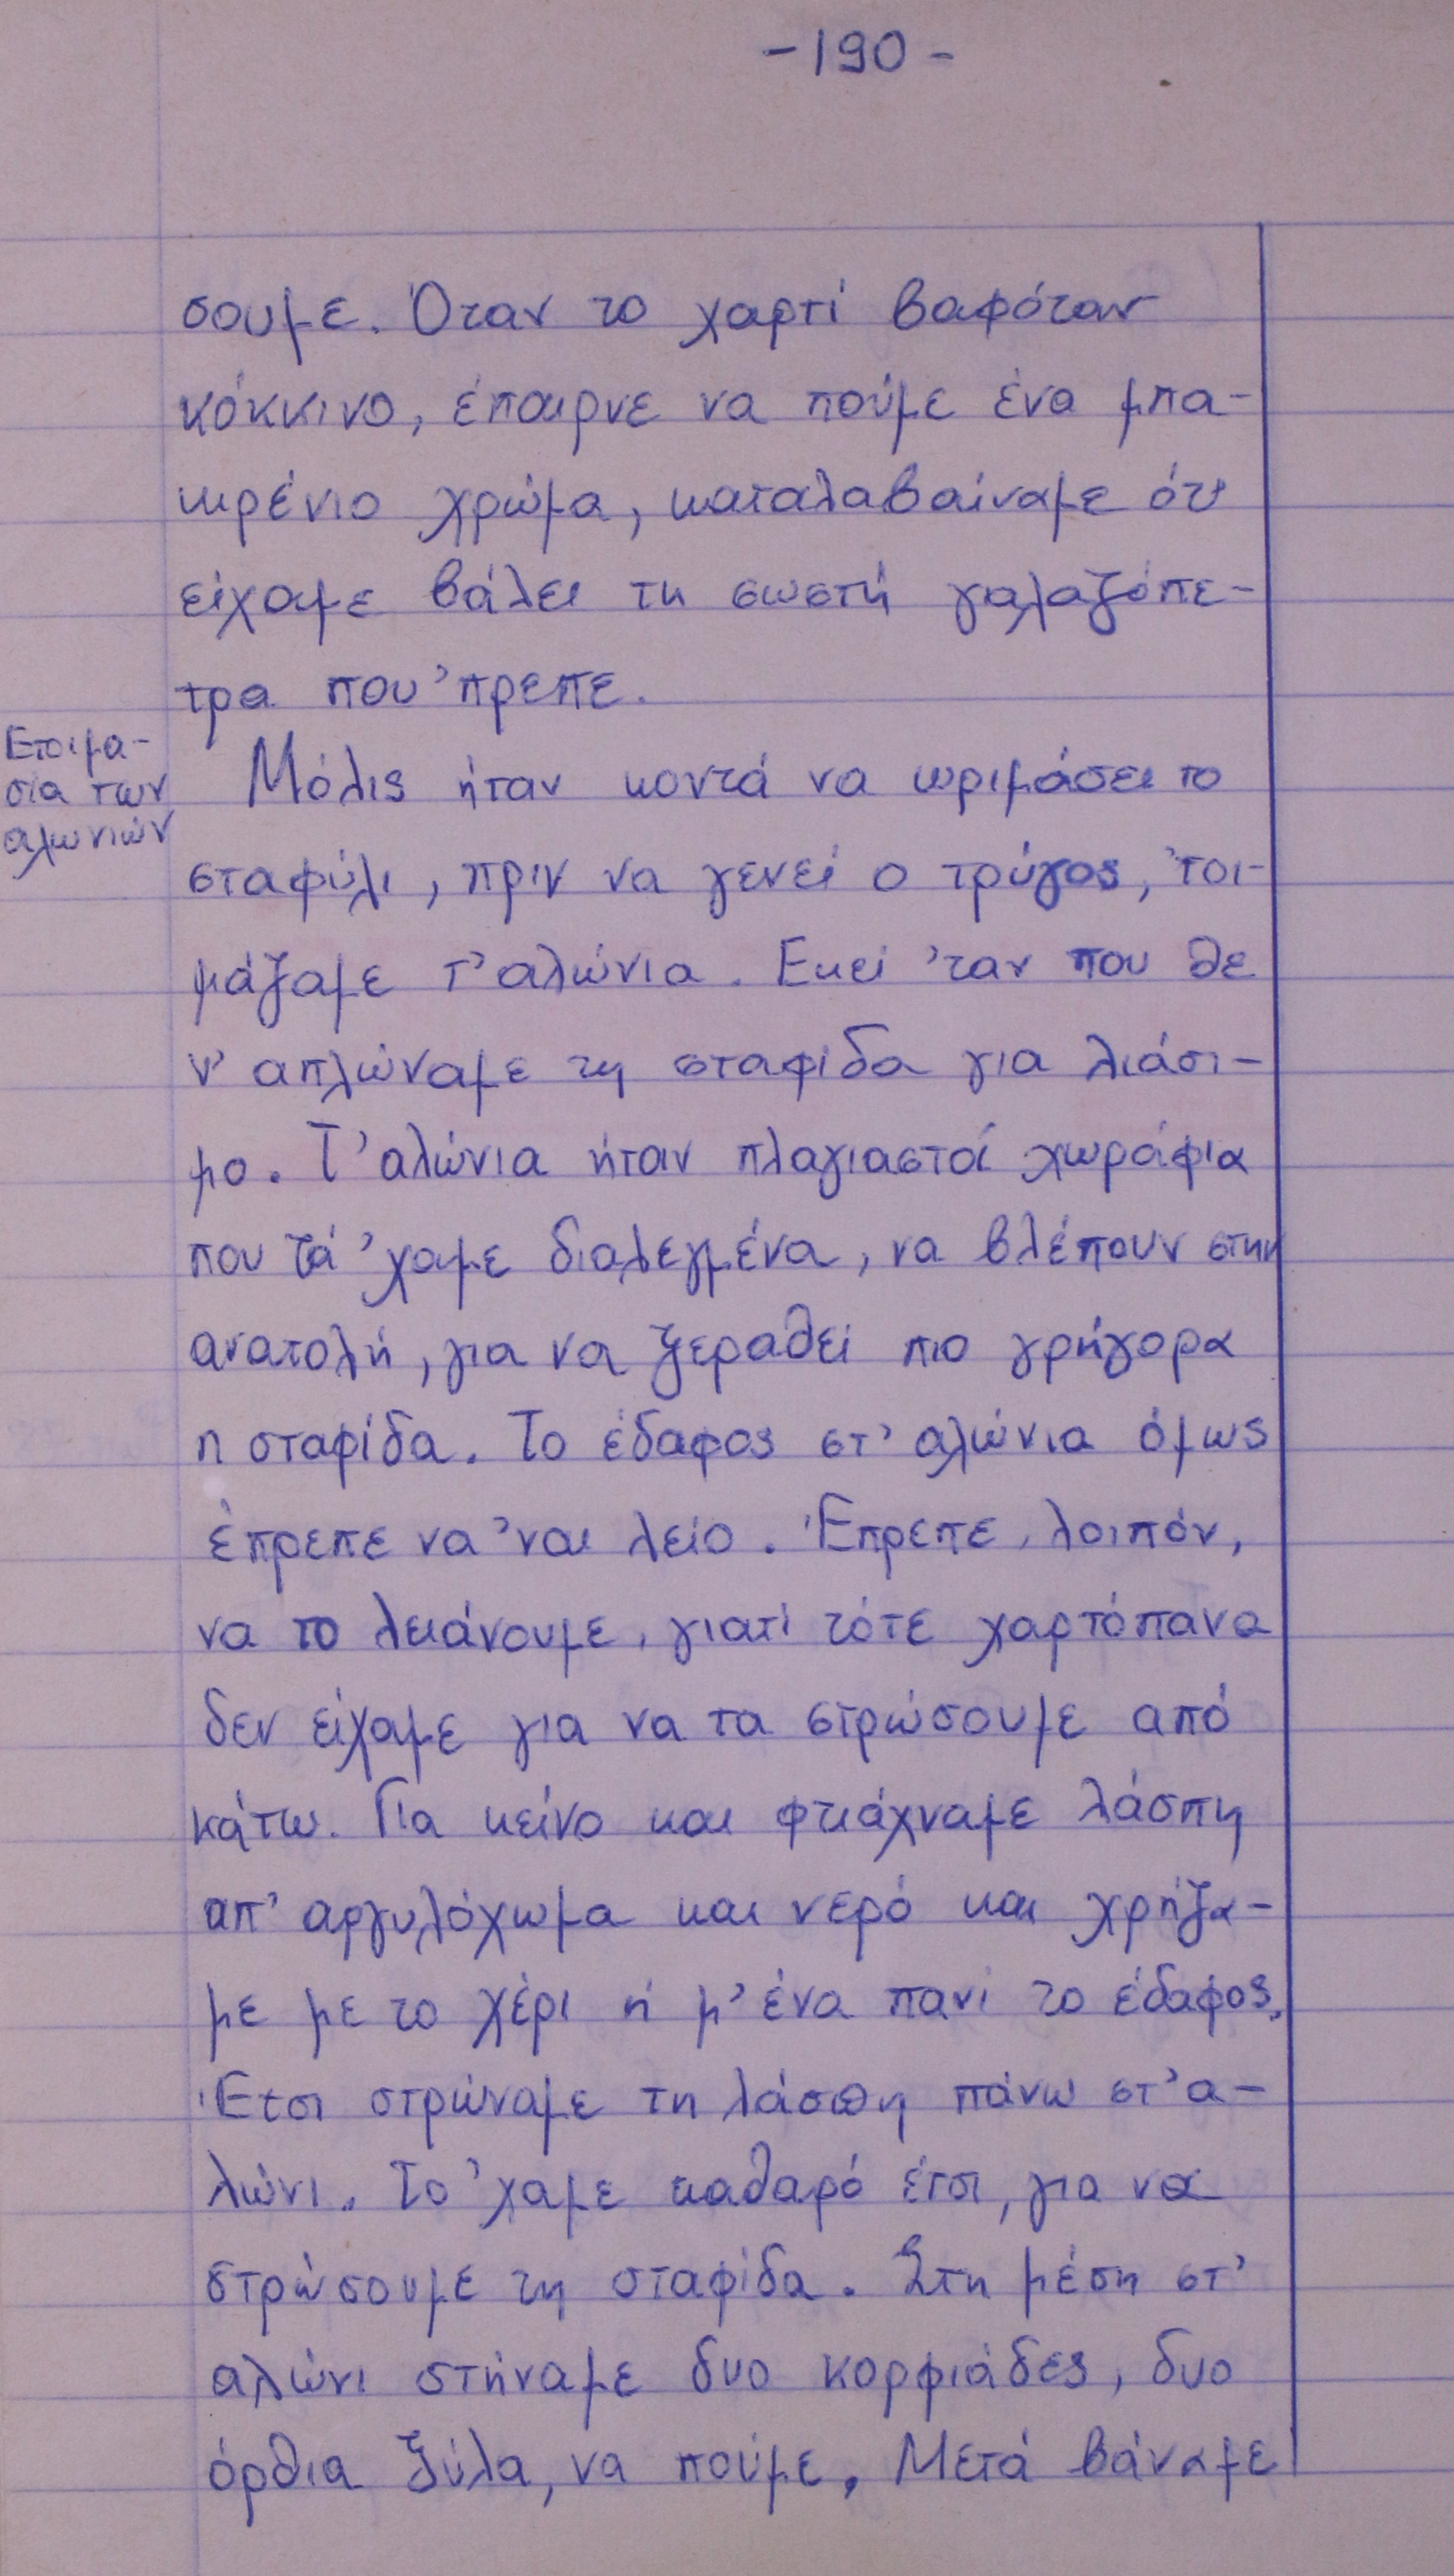 -190-
σουμε. Όταν το χαρτί βαφόταν
κόκκινο, έπαιρνε να πούμε ένα μπα-
κιρένιο χρώμα, καταλαβαίναμε ότι
είχαμε βάλει τη σωστή γαλαζόπε-
τρα που 'πρεπε.
Ετοιμα-
σία των
αλωνιών
Μόλις ήταν κοντά να ωριμάσει το
σταφύλι, πριν να γενεί ο τρύγος, 'τοι-
μάζαμε τ' αλώνια. Εκεί 'ταν που θε
ν' απλώναμε τη σταφίδα για λιάσι-
μο. Τ' αλώνια ήταν πλαγιαστά χωράφια
που τά 'χαμε διαλεγμένα, να βλέπουν στην
ανατολή, για να ξεραθεί πιο γρήγορα
η σταφίδα. Το έδαφος στ' αλώνια όμως
έπρεπε να 'ναι λείο. Έπρεπε, λοιπόν,
να το λειάνουμε, γιατί τότε χαρτόπανα
δεν είχαμε για να τα στρώσουμε από
κάτω. Για κείνο και φτιάχναμε λάσπη
απ' αργυλόχωμα και νερό και χρήζα-
με με το χέρι ή μ' ένα πανί το έδαφος.
Έτσι στρώναμε τη λάσπη πάνω στ' α-
λώνι. Το 'χαμε καθαρό έτσι, για να
στρώσουμε τη σταφίδα. Στη μέση στ'
αλώνι στήναμε δυο κορφιάδες, δυο
όρθια ξύλα, να πούμε. Μετά βάναμε